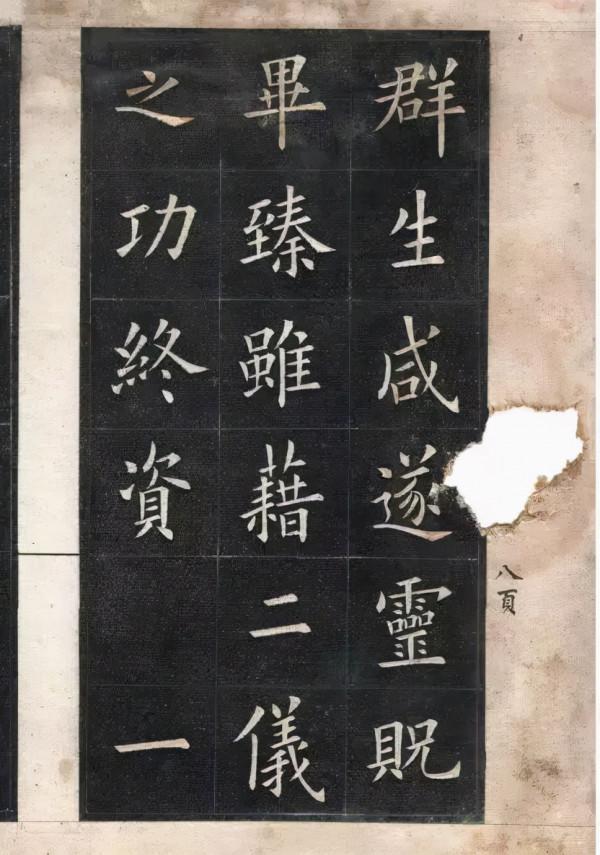 群生咸遂靈貺
畢臻雖藉二儀
之功終資一
八頁